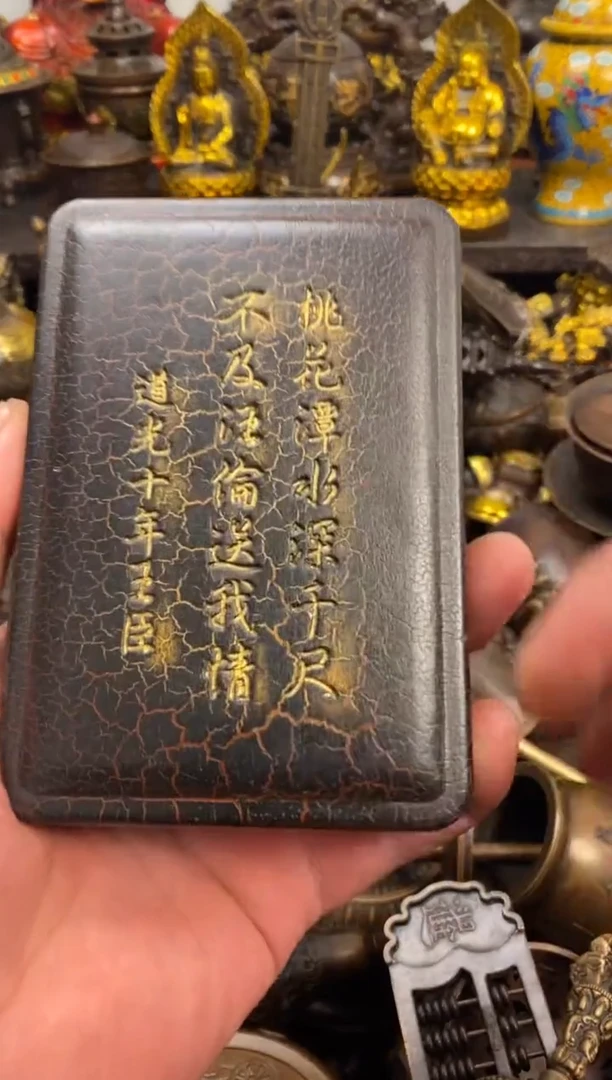 桃花潭水深千尺
不及汪倫送我情
道光十年王臣